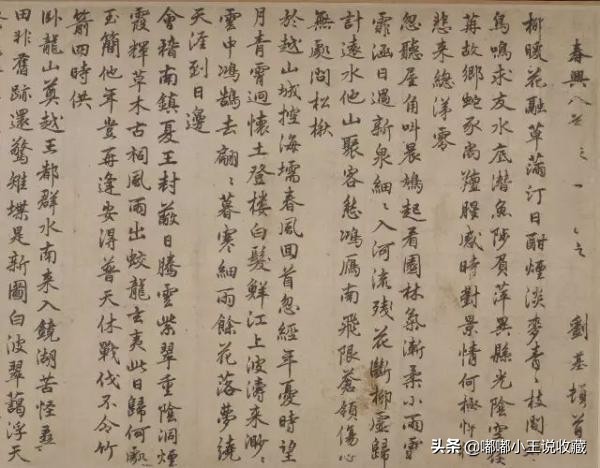 春興八首之一 〻之 劉基頓首
柳暖花融草滿汀日酣煙淡麥青〻枝間
鳥鳴求友水底潛魚陟負萍異縣光陰空
苒故鄉蛇豕尚羶腥感時對景情何極
悲来總涕零
忽聽屋角叫晨鳩起看園林氣漸柔小雨雲
霏涵日過新泉細〻入河流残花斷柳虛歸
計遠水他山聚客愁鴻雁南飛限蒼領傷心
無處問松楸
於越山城控海壖春風回首忽經年憂時望
月青霄迥懷土登樓白髮鮮江上波濤来渺〻
雲中鴻鵠去翩〻暮寒細雨餘花落夢繞
天涯到日邊
會稽南鎮夏王封蔽日騰雲紫翠重陰洞煙
霞輝草木古祠風雨出蛟龍玄夷此日歸何處
玉簡他年豈再逢安得普天休戰伐不令竹
箭四時供
臥龍山奠越王都群水南来入鏡湖苦怪
田非舊跡還驚雉堞是新圖白波翠藹浮天
头条 @嘟嘟小王说收藏